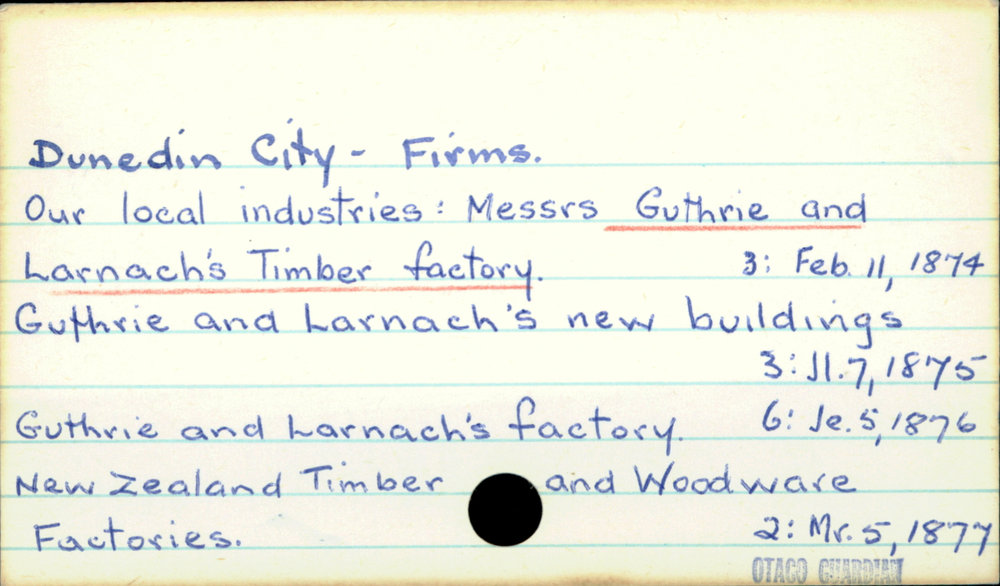 Dunedin City - Firms.
Our local industries: Messrs Guthrie and
Larnach's Timber factory. 3: Feb. 11, 1874
Guthrie and Larnach's new buildings
3: Jl. 7, 1875
Guthrie and Larnach's factory. 6: Je. 5, 1876
New Zealand Timber and Woodware
Factories. 2: Mr. 5, 1877
OTAGO GUARDIAN